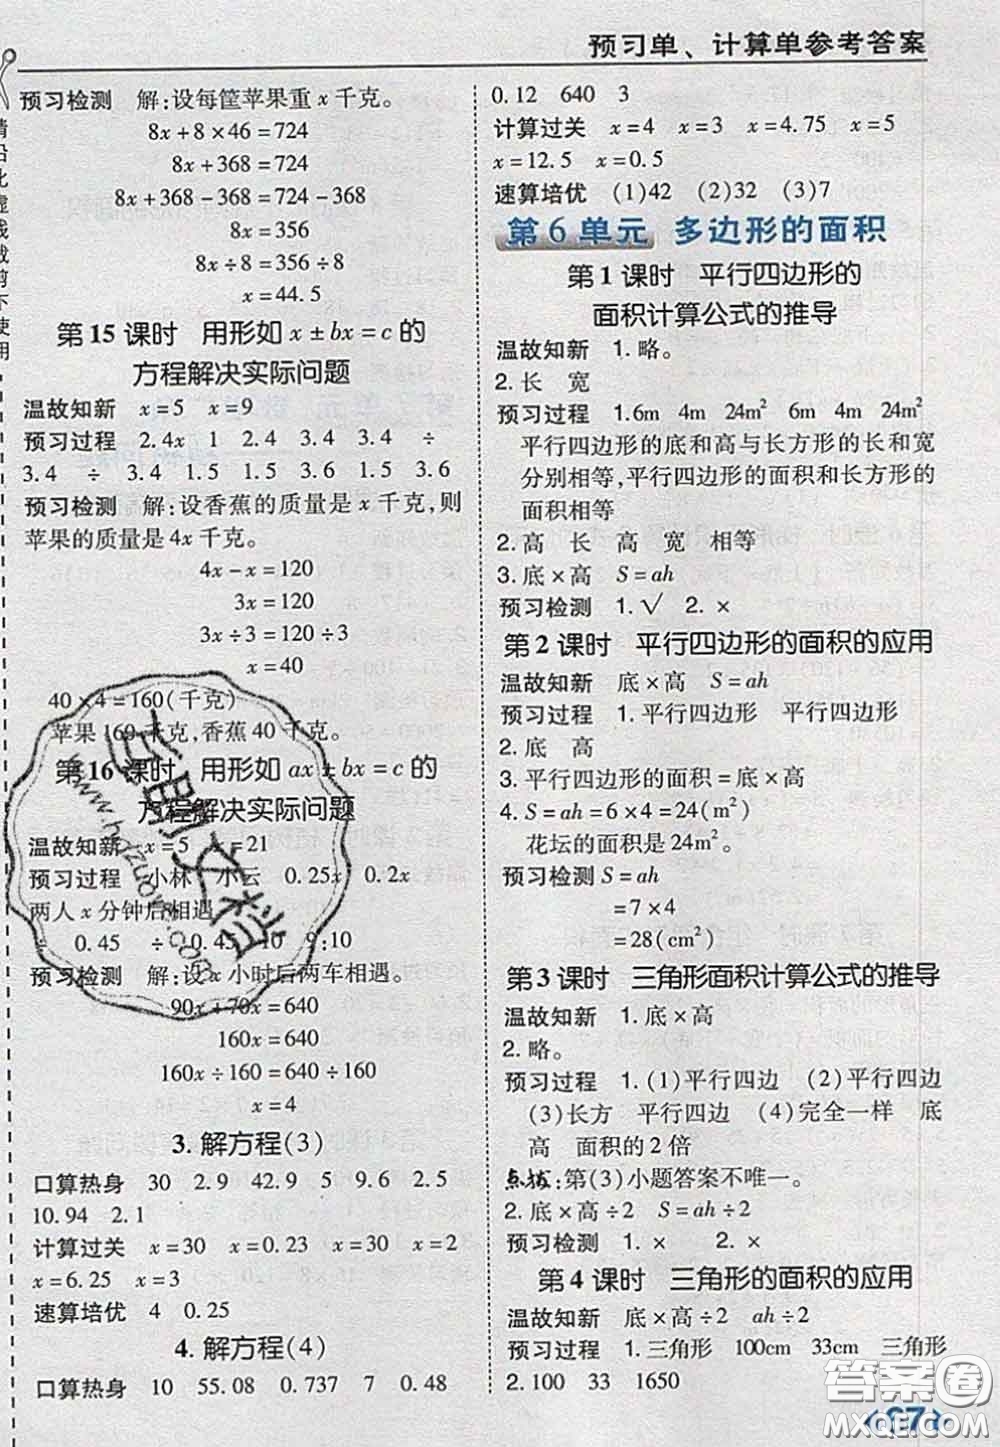 预习单、计算单参考答案
请沿此虚线裁剪下使用
预习检测 解:设每筐苹果重 x 千克。
8x+8×46=724
8x+368=724
8x+368-368=724-368
8x=356
8x÷8=356÷8
x=44.5
第 15 课时 用形如 x±bx=c 的
方程解决实际问题
温故知新 x=5 x=9
预习过程 2.4x 1 2.4 3.4 3.4 ÷
3.4 ÷ 3.4 1.5 1.5 3.5 3.6
预习检测 解:设香蕉的质量是 x 千克,则
苹果的质量是 4x 千克。
4x-x=120
3x=120
3x÷3=120÷3
x=40
40×4=160(千克)
苹果 160 千克,香蕉 40 千克。
第 16 课时 用形如 ax±bx=c 的
方程解决实际问题
温故知新 x=5 x=21
预习过程 小林 小云 0.25x 0.2x
两人 x 分钟后相遇
÷ 0.45 ÷ 0.45 10 9:10
预习检测 解:设 x 小时后两车相遇。
90x+70x=640
160x=640
160x÷160=640÷160
x=4
3. 解方程(3)
口算热身 30 2.9 42.9 5 9.6 2.5
10.94 2.1
计算过关 x=30 x=0.23 x=30 x=2
x=6.25 x=3
速算培优 4 0.25
4. 解方程(4)
口算热身 10 55.08 0.737 7 0.48
0.12 640 3
计算过关 x=4 x=3 x=4.75 x=5
x=12.5 x=0.5
速算培优 (1)42 (2)32 (3)7
第 6 单元 多边形的面积
第 1 课时 平行四边形的
面积计算公式的推导
温故知新 1.略。
2.长 宽
预习过程 1.6m 4m 24m² 6m 4m 24m²
平行四边形的底和高与长方形的长和宽
分别相等,平行四边形的面积和长方形的
面积相等
2.高 长 高 宽 相等
3.底×高 S=ah
预习检测 1.√ 2.×
第 2 课时 平行四边形的面积的应用
温故知新 底×高 S=ah
预习过程 1.平行四边形 平行四边形
2.底 高
3.平行四边形的面积=底×高
4.S=ah=6×4=24(m²)
花坛的面积是 24m²。
预习检测 S=ah
=7×4
=28(cm²)
第 3 课时 三角形面积计算公式的推导
温故知新 1.底×高
2.略。
预习过程 1.(1)平行四边 (2)平行四边
(3)长方 平行四边 (4)完全一样 底
高 面积的 2 倍
点拨:第(3)小题答案不唯一。
2.底×高÷2 S=ah÷2
预习检测 1.× 2.×
第 4 课时 三角形的面积的应用
温故知新 底×高÷2 ah÷2
预习过程 1.三角形 100cm 33cm 三角形
2.100 33 1650
答案圈
MXQE.COM